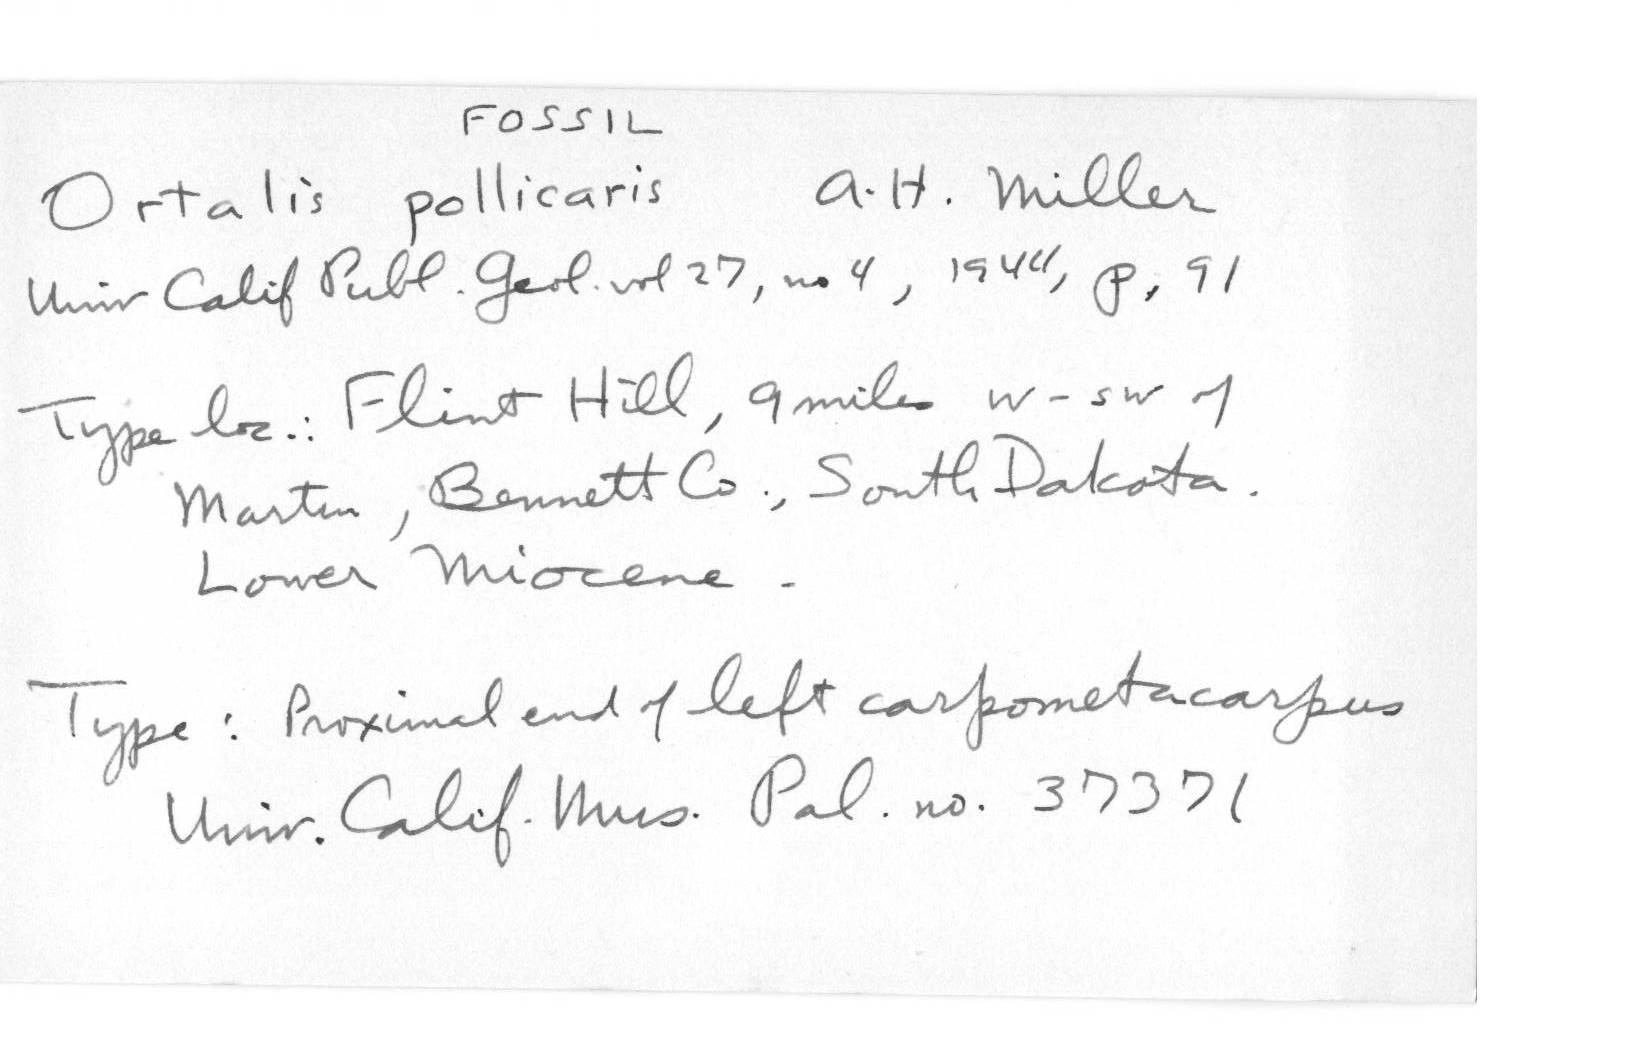 FOSSIL
Ortalis pollicaris A. H. Miller
Univ Calif Publ. Geol. vol 27, no 4, 1944, p. 91
Type loc.: Flint Hill, 9 miles W-SW of
Martin, Bennett Co., South Dakota.
Lower Miocene.
Type: Proximal end of left carpometacarpus
Univ. Calif. Mus. Pal. no. 37371